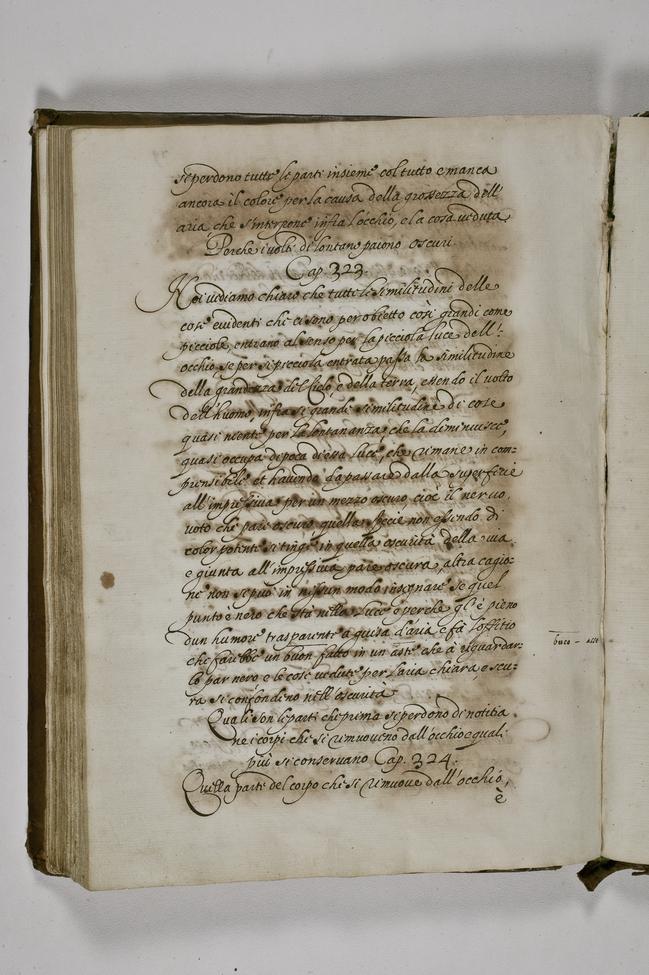 si perdono tutte le parti insieme col tutto e manca
ancora il colore per la causa della grossezza dell'
aria, che s'interpone infra l'occhio, e la cosa veduta
Perche i volti di lontano paiono oscuri
Cap. 323.
Noi vediamo chiaro che tutte le similitudini delle
cose evidenti che ci sono per obietto così grandi come
picciole, entrano al senso per la picciola luce dell'
occhio, se per si picciola entrata passa la similitudine
della grandezza del Cielo, e della terra, essendo il volto
dell'huomo, infra si grandi similitudini di cose
quasi niente per la lontananza, che la diminuisce,
quasi occupa di poca di essa luce, che rimane in com-
prensibile et havendo da passare dalla superficie
all'impressiva per un mezzo oscuro cioè il nervo,
voto che pare oscuro quella specie non essendo di
color potente si tinge in quella oscurità della via
e giunta all'impressiva pare oscura, altra cagio-
ne non si può in nissun modo insegnare se quel
punto è nero che stà nella luce è perche gl'è pieno
dun humore trasparente a guisa d'aria e fà l'offitio
che farebbe un buon fatto in un aste che à risguardar-
lo par nero e le cose vedute per l'aria chiara e scu-
ra si confondeno nell'oscurità
Quali son le parti che prima si perdono di notitia
ne i corpi che si rimuoveno dall'occhio e quali
più si conservano Cap. 324.
Quella parte del corpo che si rimuove dall'occhio,
è
buco - asse